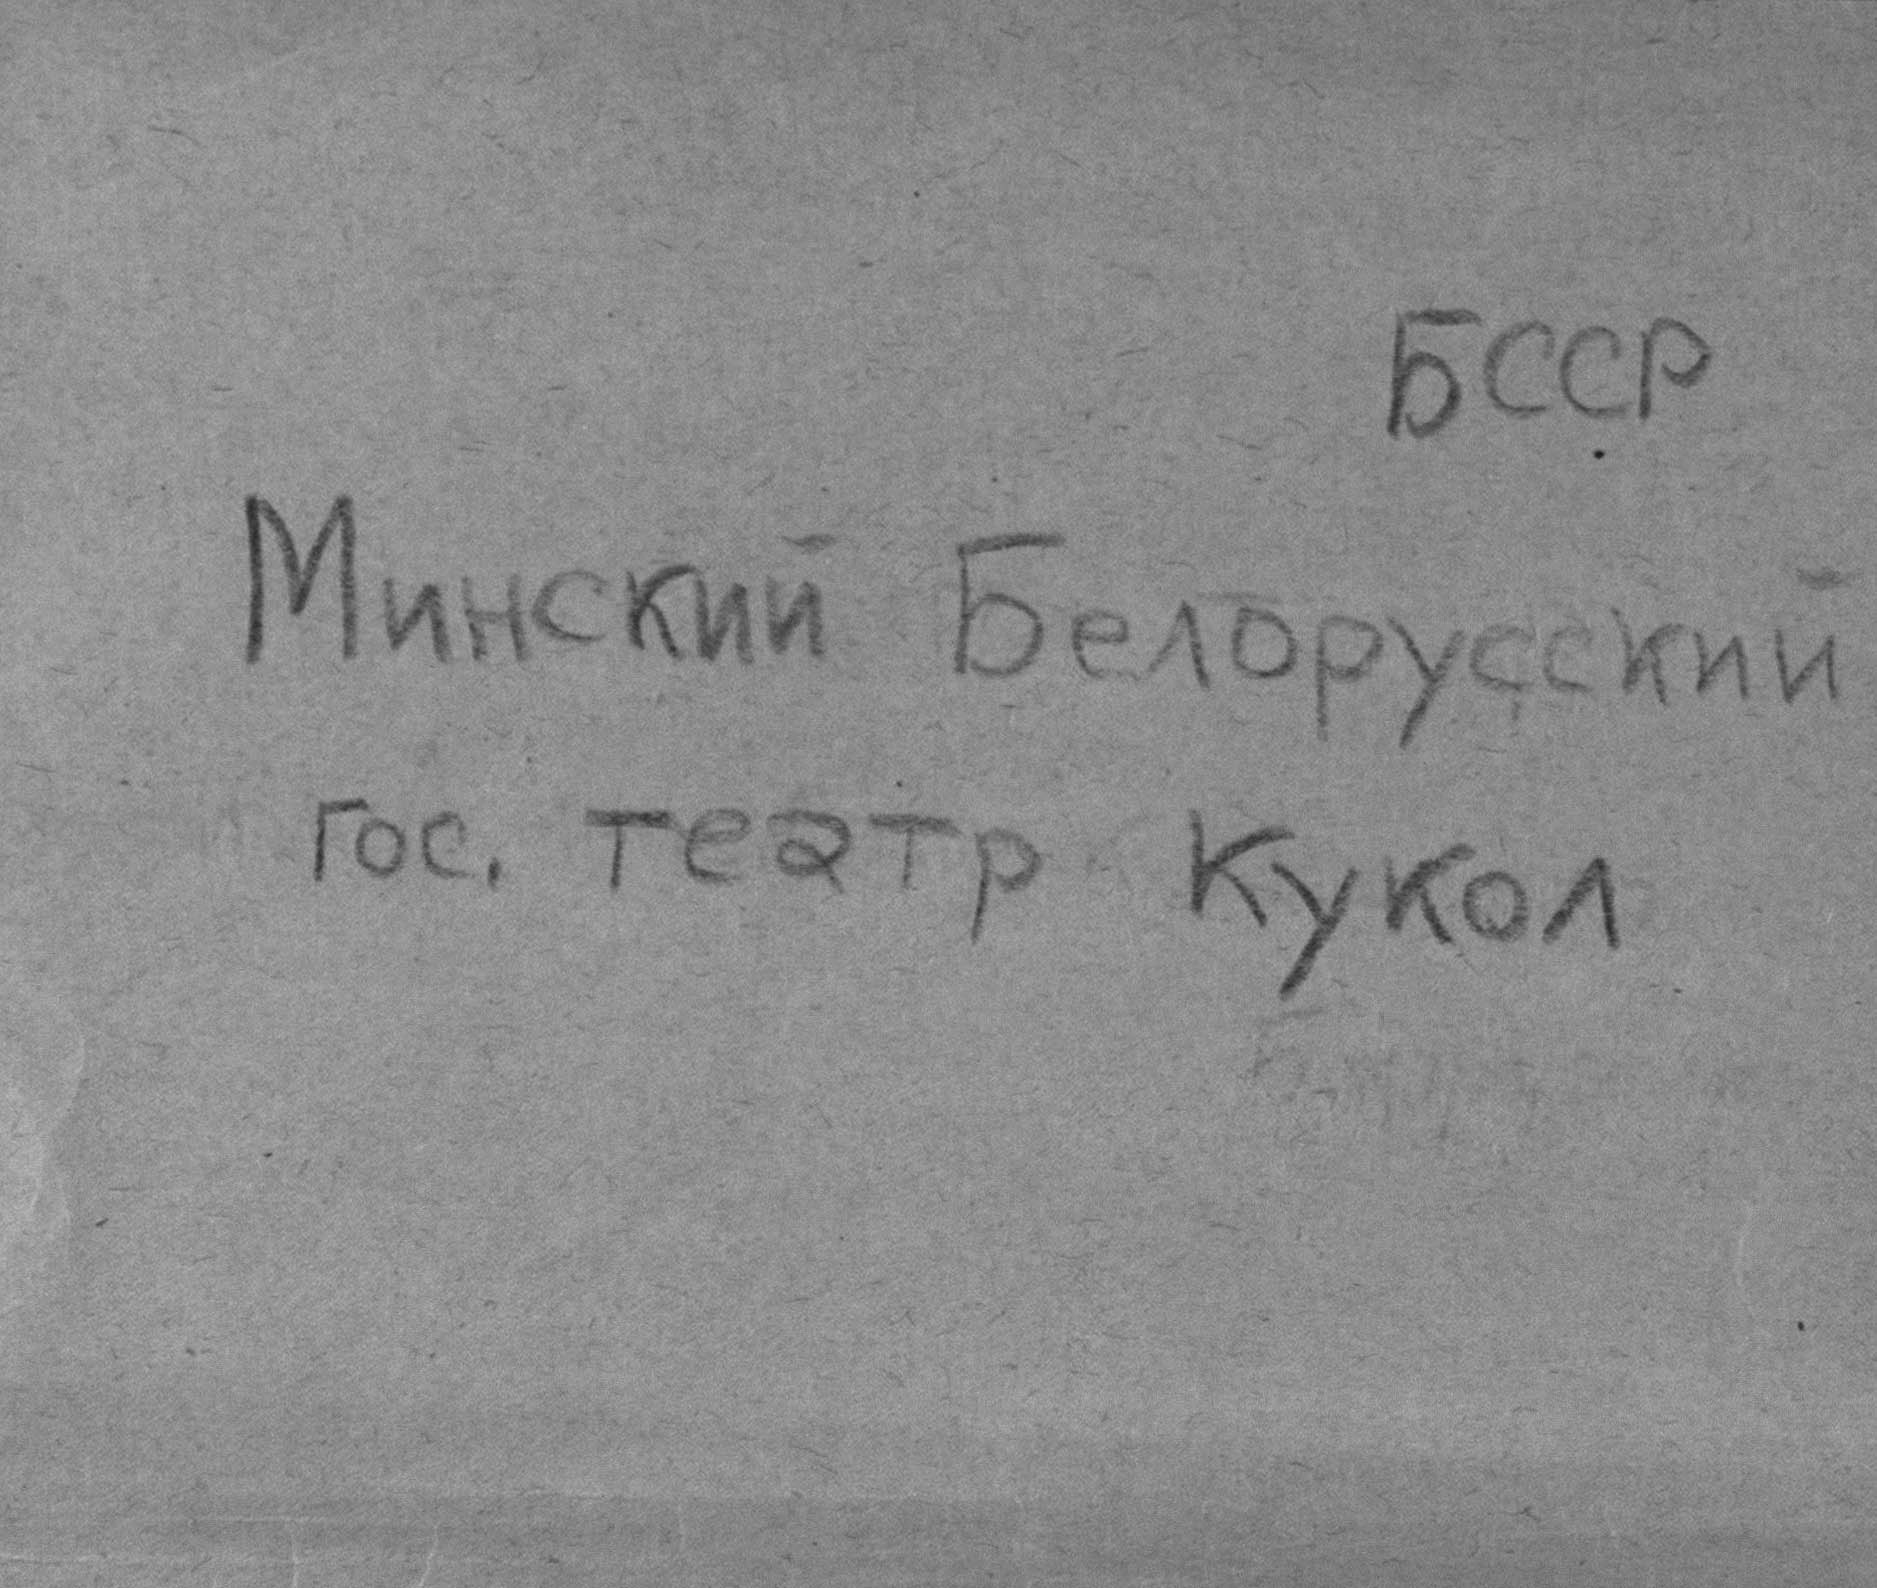 БССР
Минский Белорусский
гос. театр Кукол